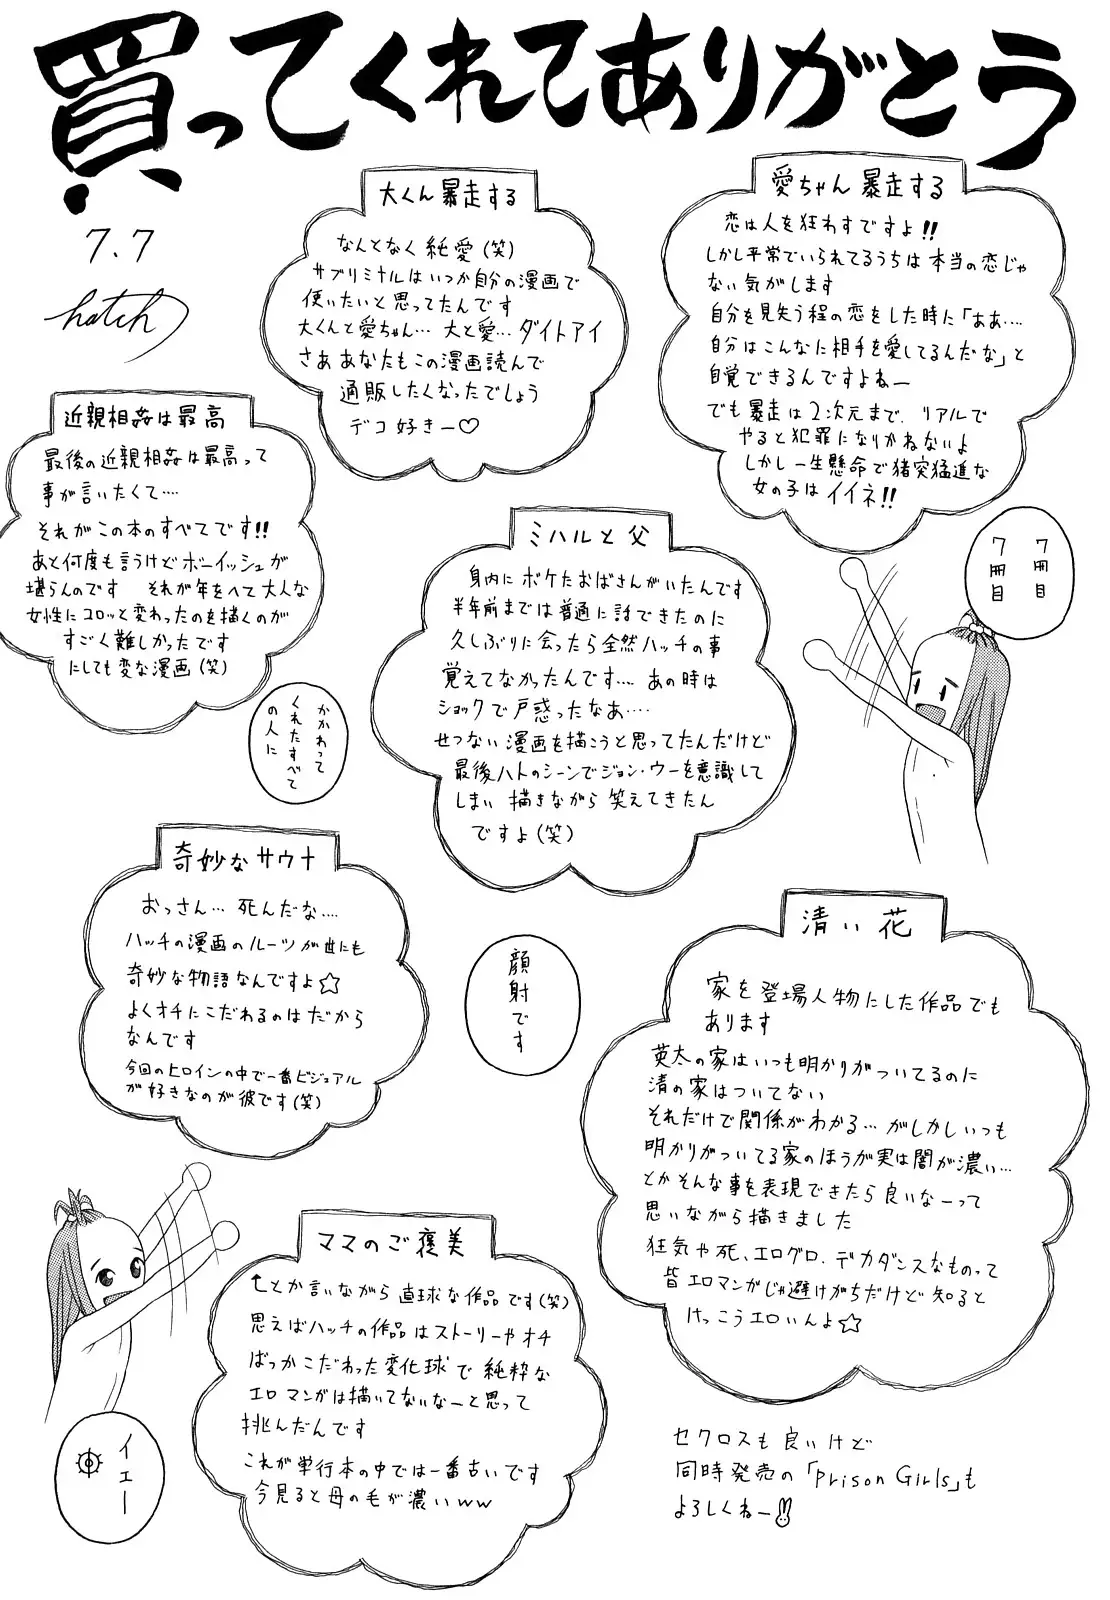 買ってくれてありがとう
7.7
hatch
愛ちゃん暴走する
恋は人を狂わすですよ!!
しかし平常でいられてるうちは本当の恋じゃ
ない気がします
自分を見失う程の恋をした時に「ああ‥‥
自分はこんなに相手を愛してるんだな」と
自覚できるんですよねー
でも暴走は2次元まで、リアルで
やると犯罪になりかねないよ
しかし一生懸命で猪突猛進な
女の子はイイネ!!
大くん暴走する
なんとなく純愛(笑)
サブリミナルはいつか自分の漫画で
使いたいと思ってたんです
大くんと愛ちゃん…大と愛…ダイトアイ
さああなたもこの漫画読んで
通販したくなったでしょう
デコ好きー♡
近親相姦は最高
最後の近親相姦は最高って
事が言いたくて‥‥
それがこの本のすべてです!!
あと何度も言うけどボーイッシュが
堪らんのです それが年をへて大人な
女性にコロッと変わったのを描くのが
すごく難しかったです
にしても変な漫画(笑)
7冊目
7冊目
ミハルと父
身内にボケたおばさんがいたんです
半年前までは普通に話できたのに
久しぶりに会ったら全然ハッチの事
覚えてなかったんです‥‥あの時は
ショックで戸惑ったなあ‥‥
せつない漫画を描こうと思ってたんだけど
最後ハトのシーンでジョン・ウーを意識して
しまい描きながら笑えてきたん
ですよ(笑)
かかわって
くれたすべて
の人に
奇妙なサウナ
おっさん…死んだな‥‥
ハッチの漫画のルーツが世にも
奇妙な物語なんですよ☆
よくオチにこだわるのはだから
なんです
今回のヒロインの中で一番ビジュアル
が好きなのが彼です(笑)
顔射です
清い花
家を登場人物にした作品でも
あります
英太の家はいつも明かりがついてるのに
清の家はついてない
それだけで関係がわかる…がしかしいつも
明かりがついてる家のほうが実は闇が濃い…
とかそんな事を表現できたら良いなーって
思いながら描きました
狂気や死、エログロ、デカダンスなものって
皆エロマンガじゃ避けがちだけど知ると
けっこうエロいんよ☆
ママのご褒美
↑とか言いながら直球な作品です(笑)
思えばハッチの作品はストーリーやオチ
ばっかこだわった変化球で純粋な
エロマンガは描いてないなーと思って
挑んだんです
これが単行本の中では一番古いです
今見ると母の毛が濃いww
イェー
セクロスも良いけど
同時発売の「Prison Girls」も
よろしくねー